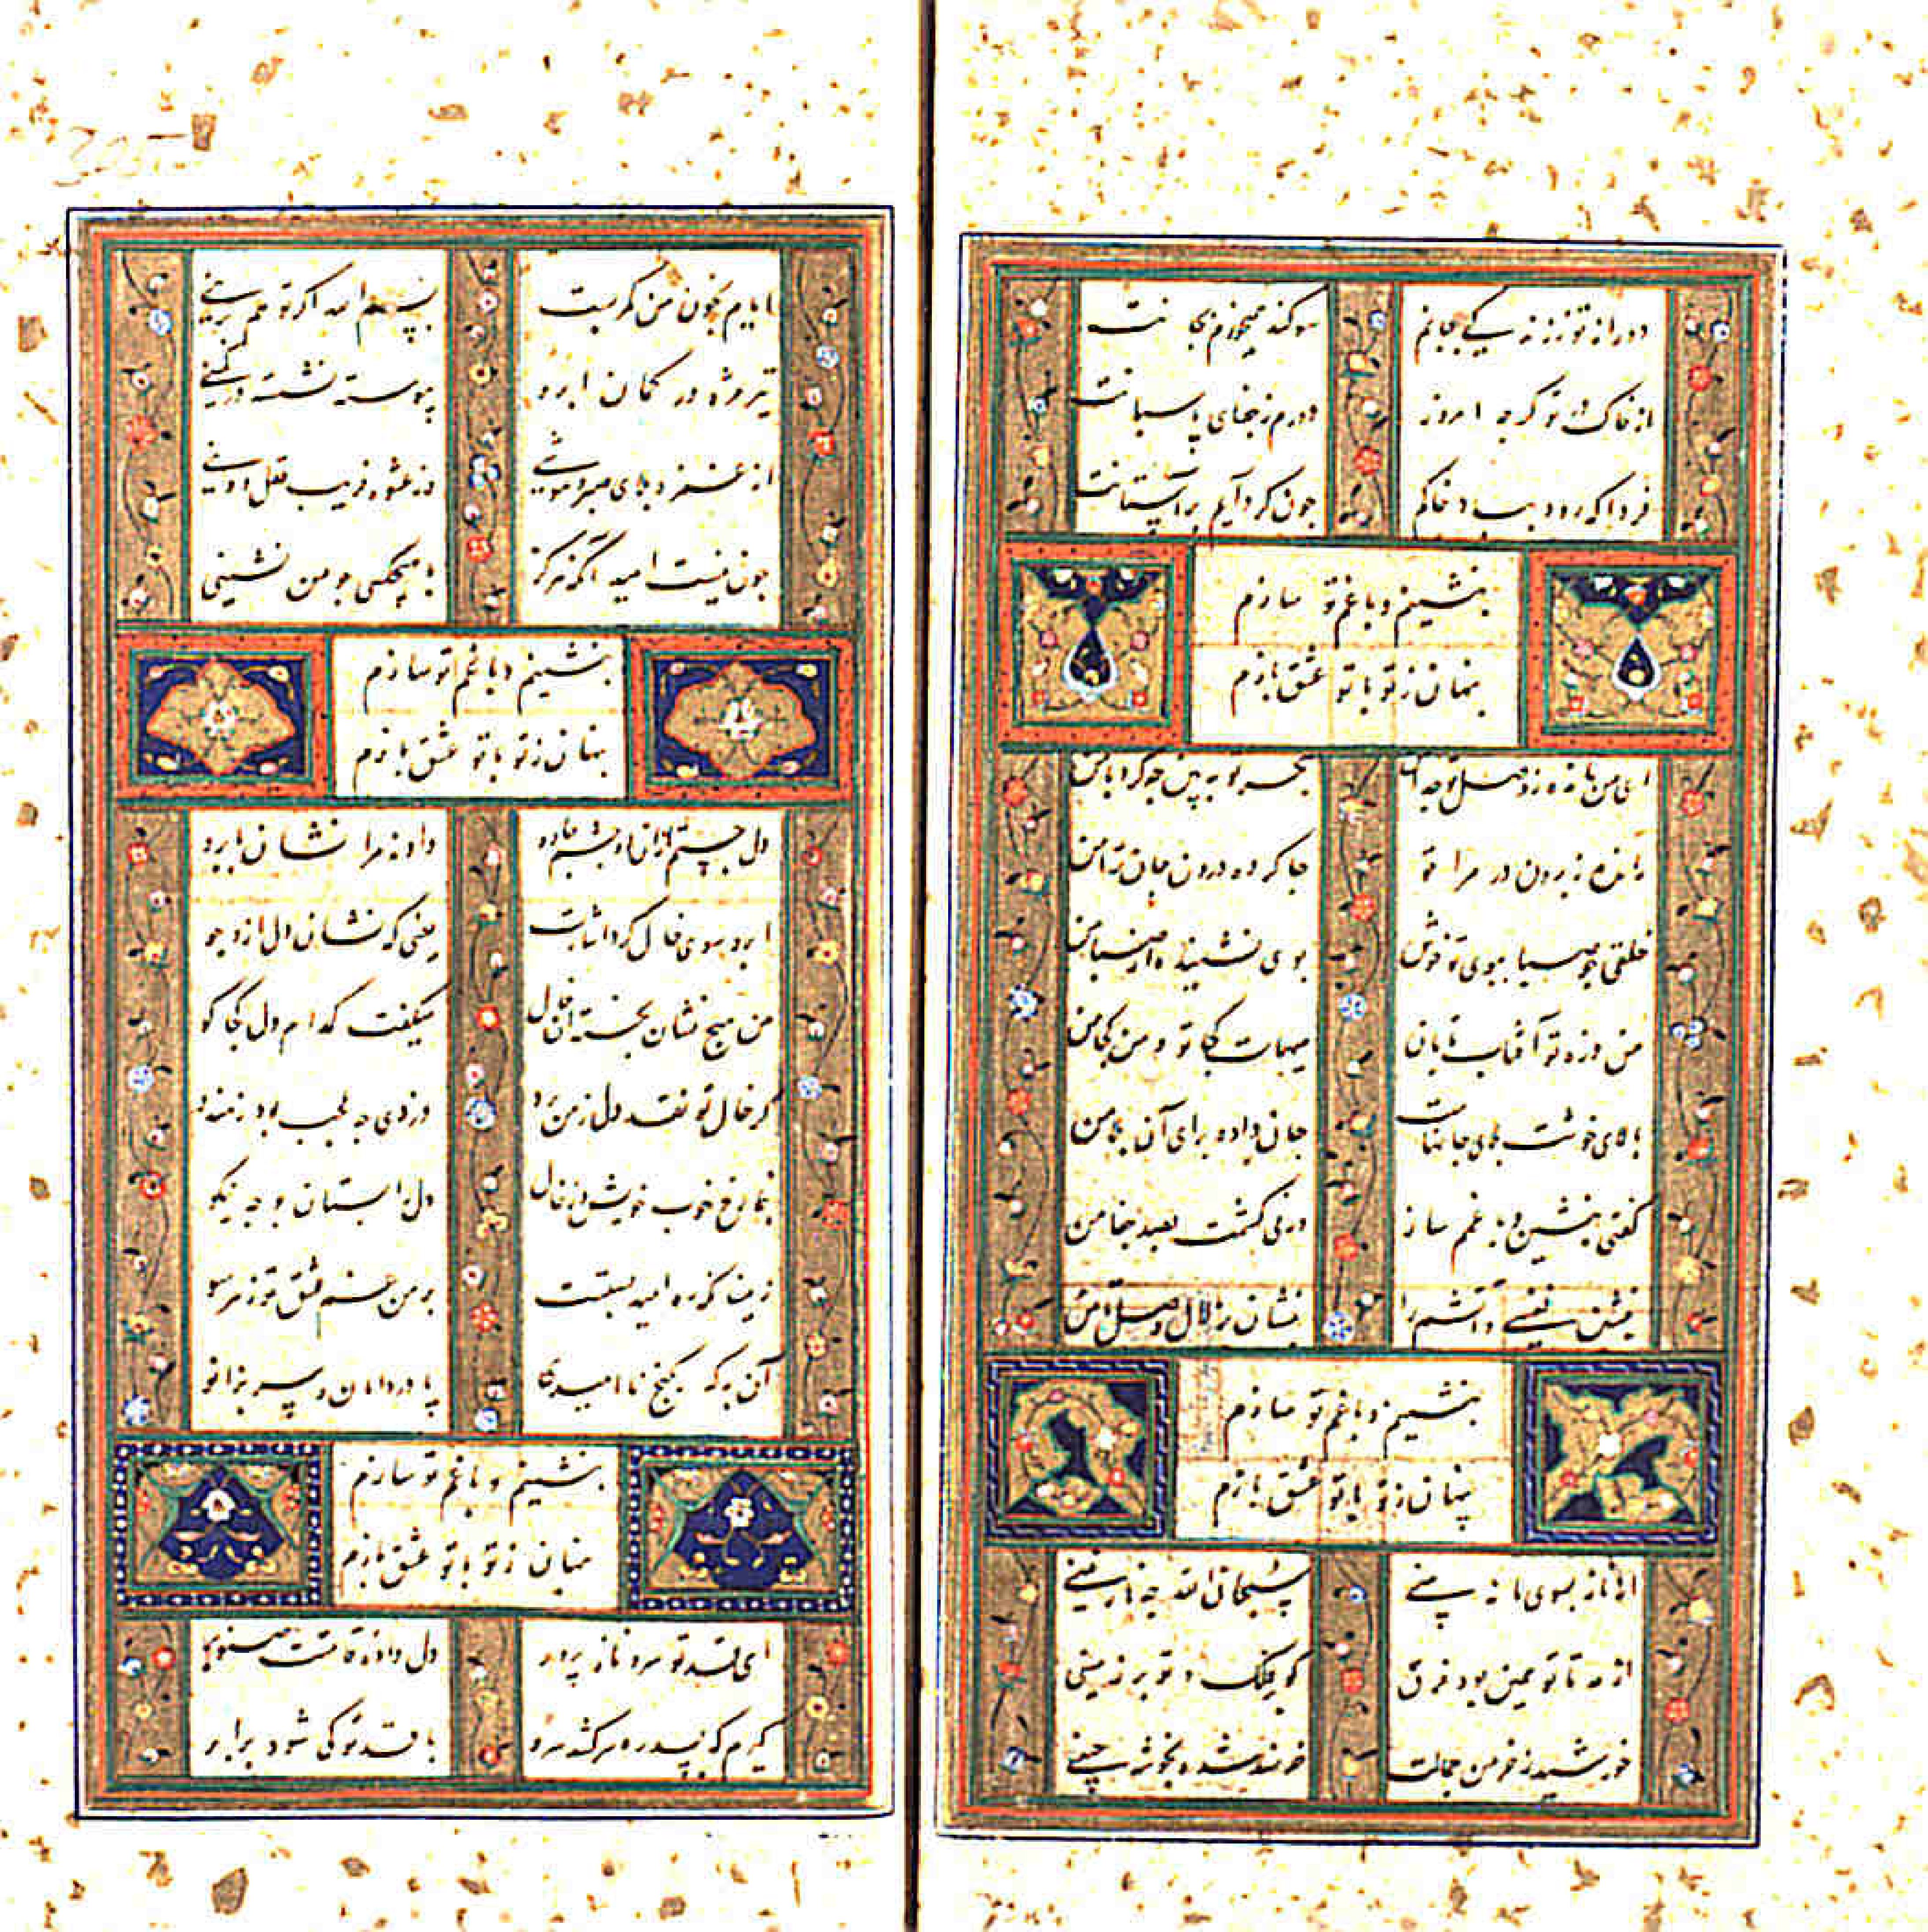 دور از تو ز زندگی بجانم سوکند میخورم بجانت
از خاک در تو کرچه امروز دورم ز جفای پاسبانت
فردا که رود بباد خاکم چون کرد آیم بر آستانت
بنشینم و با غم تو سازم
پنهان ز تو با تو عشق بازم
ای من مانده ز وصل تو جدا
رانده ز برون در مرا تو جا کرده درون جان ترا من
خلقی چو صبا ببوی تو خوش بوی نشنیده از صبا من
من ذره تو آفتاب تابان هیهات کجا تو و من کجا من
بالای خوشت بلای جانهاست جان داده برای آن بلا من
کفتی بنشین و با غم ساز
بنشین نفسی و آتشم را بنشان ز زلال وصل تا من
بنشینم و با غم تو سازم
پنهان ز تو با تو عشق بازم
از ناز بسوی ما نه بینی سبحان الله چه نازنینی
از مه تا تو همین بود فرق کو بر فلک و تو بر زمینی
خورشید ز خرمن جمالت خرسند شده بخوشه چینی
ما باریم بخون من کمر بست بسم الله اکر تو هم برینی
تیر مژه در کمان ابرو پیوسته نشسته در کمینی
از غمزه بلای صبر و هوشی وز عشوه فریب عقل و دینی
چون نیست امید آنکه هرکز با همچو منی نشینی
بنشینم و با غم تو سازم
پنهان ز تو با تو عشق بازم
دل جستم از آن دو چشم جادو دادند مرا نشان بابرو
ابرو سوی خال کرد اشارت یعنی که نشان دل ازو جو
من هیچ نشان نجسته آن خال میکفت کدام دل کجا کو
کر خال تو نقد دل ز من برد دزدی چه عجب بود ز هندو
بنما رخ خوب خویش و از خال دل بستان بوجه نیکو
زینسان که ره امید بستست بر من غم عشق تو ز هر سو
آن به که بکنج ناامیدی پا در دامان و سر بزانو
بنشینم و با غم تو سازم
پنهان ز تو با تو عشق بازم
ای قد تو سرو ناز پرور دل داده قامتت صنوبر
کیرم که بسدره سر کشد سرو با قد تو کی شود برابر